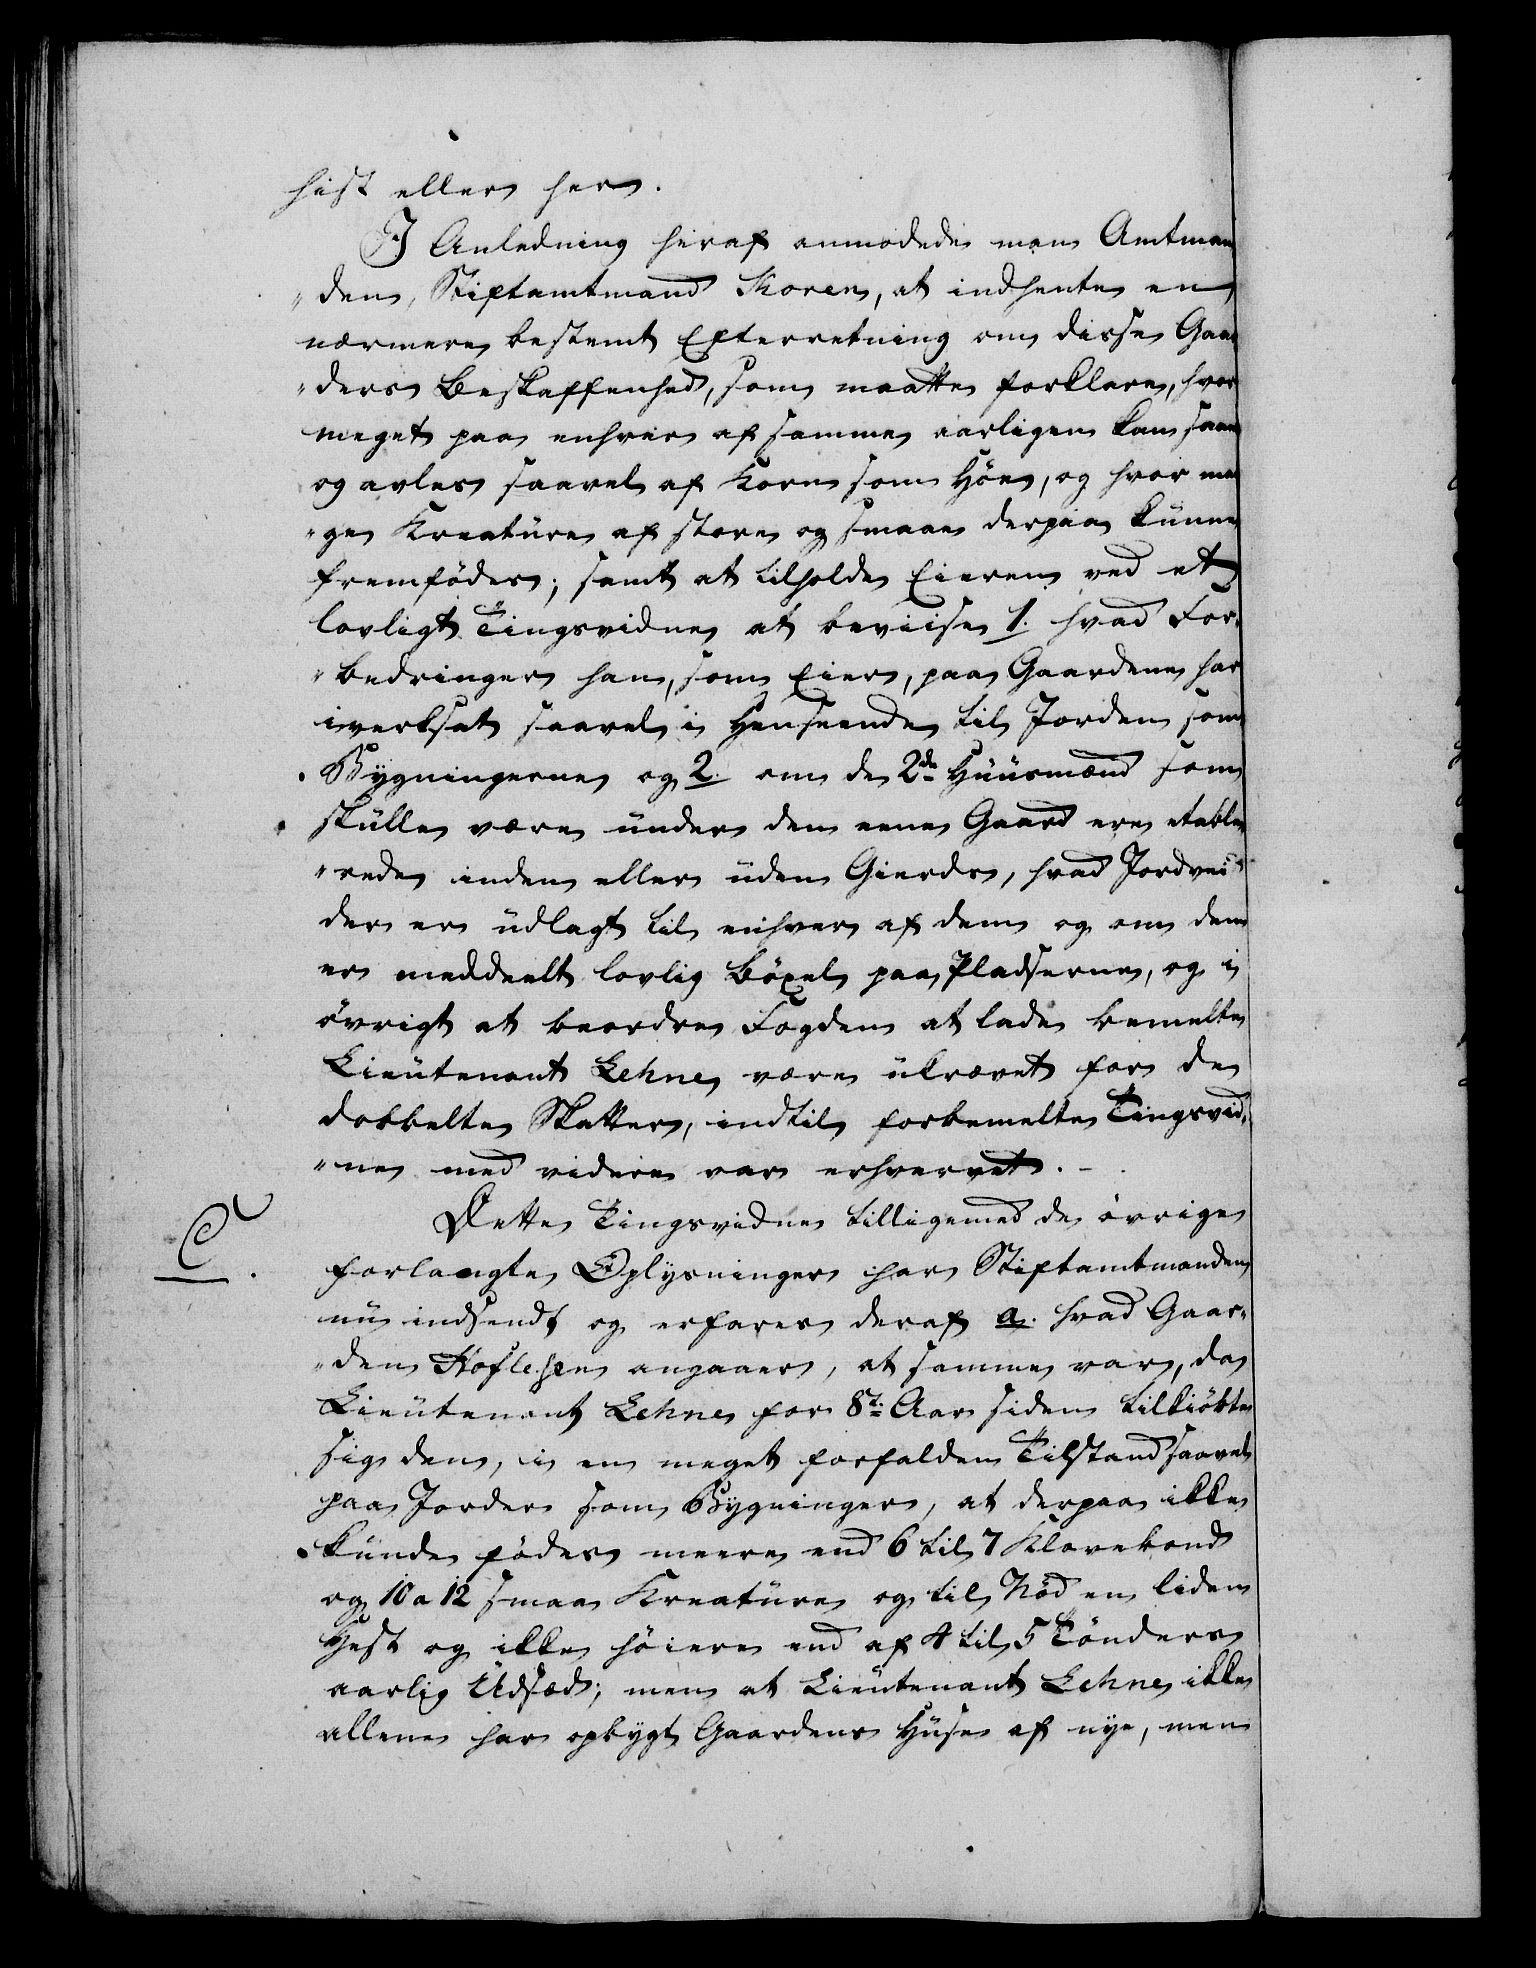 hist eller her.
I Anledning heraf anmodede man Amtman
"den, Stiftamtmand Moren, at indhente en
nærmere bestemt Efterretning om disse Gaar
"ders Beskaffenhed, som maatte forklare, hvor
meget paa enhver af samme aarligen kan saaes
og avles saavel af Korn som Höe, og hvor man
"ge Kreature af store og smaae derpaa kunne
fremfödes; samt at tilholde Eieren ved et
lovligt Tingsvidne at beviise 1. hvad For-
"bedringer han, som Eier, paa Gaardene har
iverksat saavel i Henseende til Jorden som
Bygningerne og 2. om de 2de Huusmænd som
skulle være under den eene Gaard ere etable
"rede inden eller uden Gierdes, hvad Jordvei
der er udlagt til enhver af dem og om dem
er meddeelt lovlig Böxel paa Pladserne, og i
övrigt at beordre Fogden at lade bemelte
Lieutenant Lehne være ukrævet for de
dobbelte Skatter, indtil forbemelte Tingsvid-
"ne med videre var erhvervet. -
C. Dette Tingsvidne tilligemed de övrige
forlangte Oplysninger har Stiftamtmanden
nu indsendt og erfares deraf a. hvad Gaar-
"den Hoflehen angaaer, at samme var, da
Lieutenant Lehne for 8t. Aar siden tilkiöbte
sig den, i en meget forfalden Tilstand saavel
paa Jorder som Bygninger, at derpaa ikke
kunde födes meere end 6 til 7 Klovebond
og 10 a 12 smaa Kreature og til Nöd en liden
Hest og ikke höiere end af 4 til 5 Tönders
aarlig Udsæd; men at Lieutenant Lehne ikke
allene har opbygt Gaardens Huse af nye, men